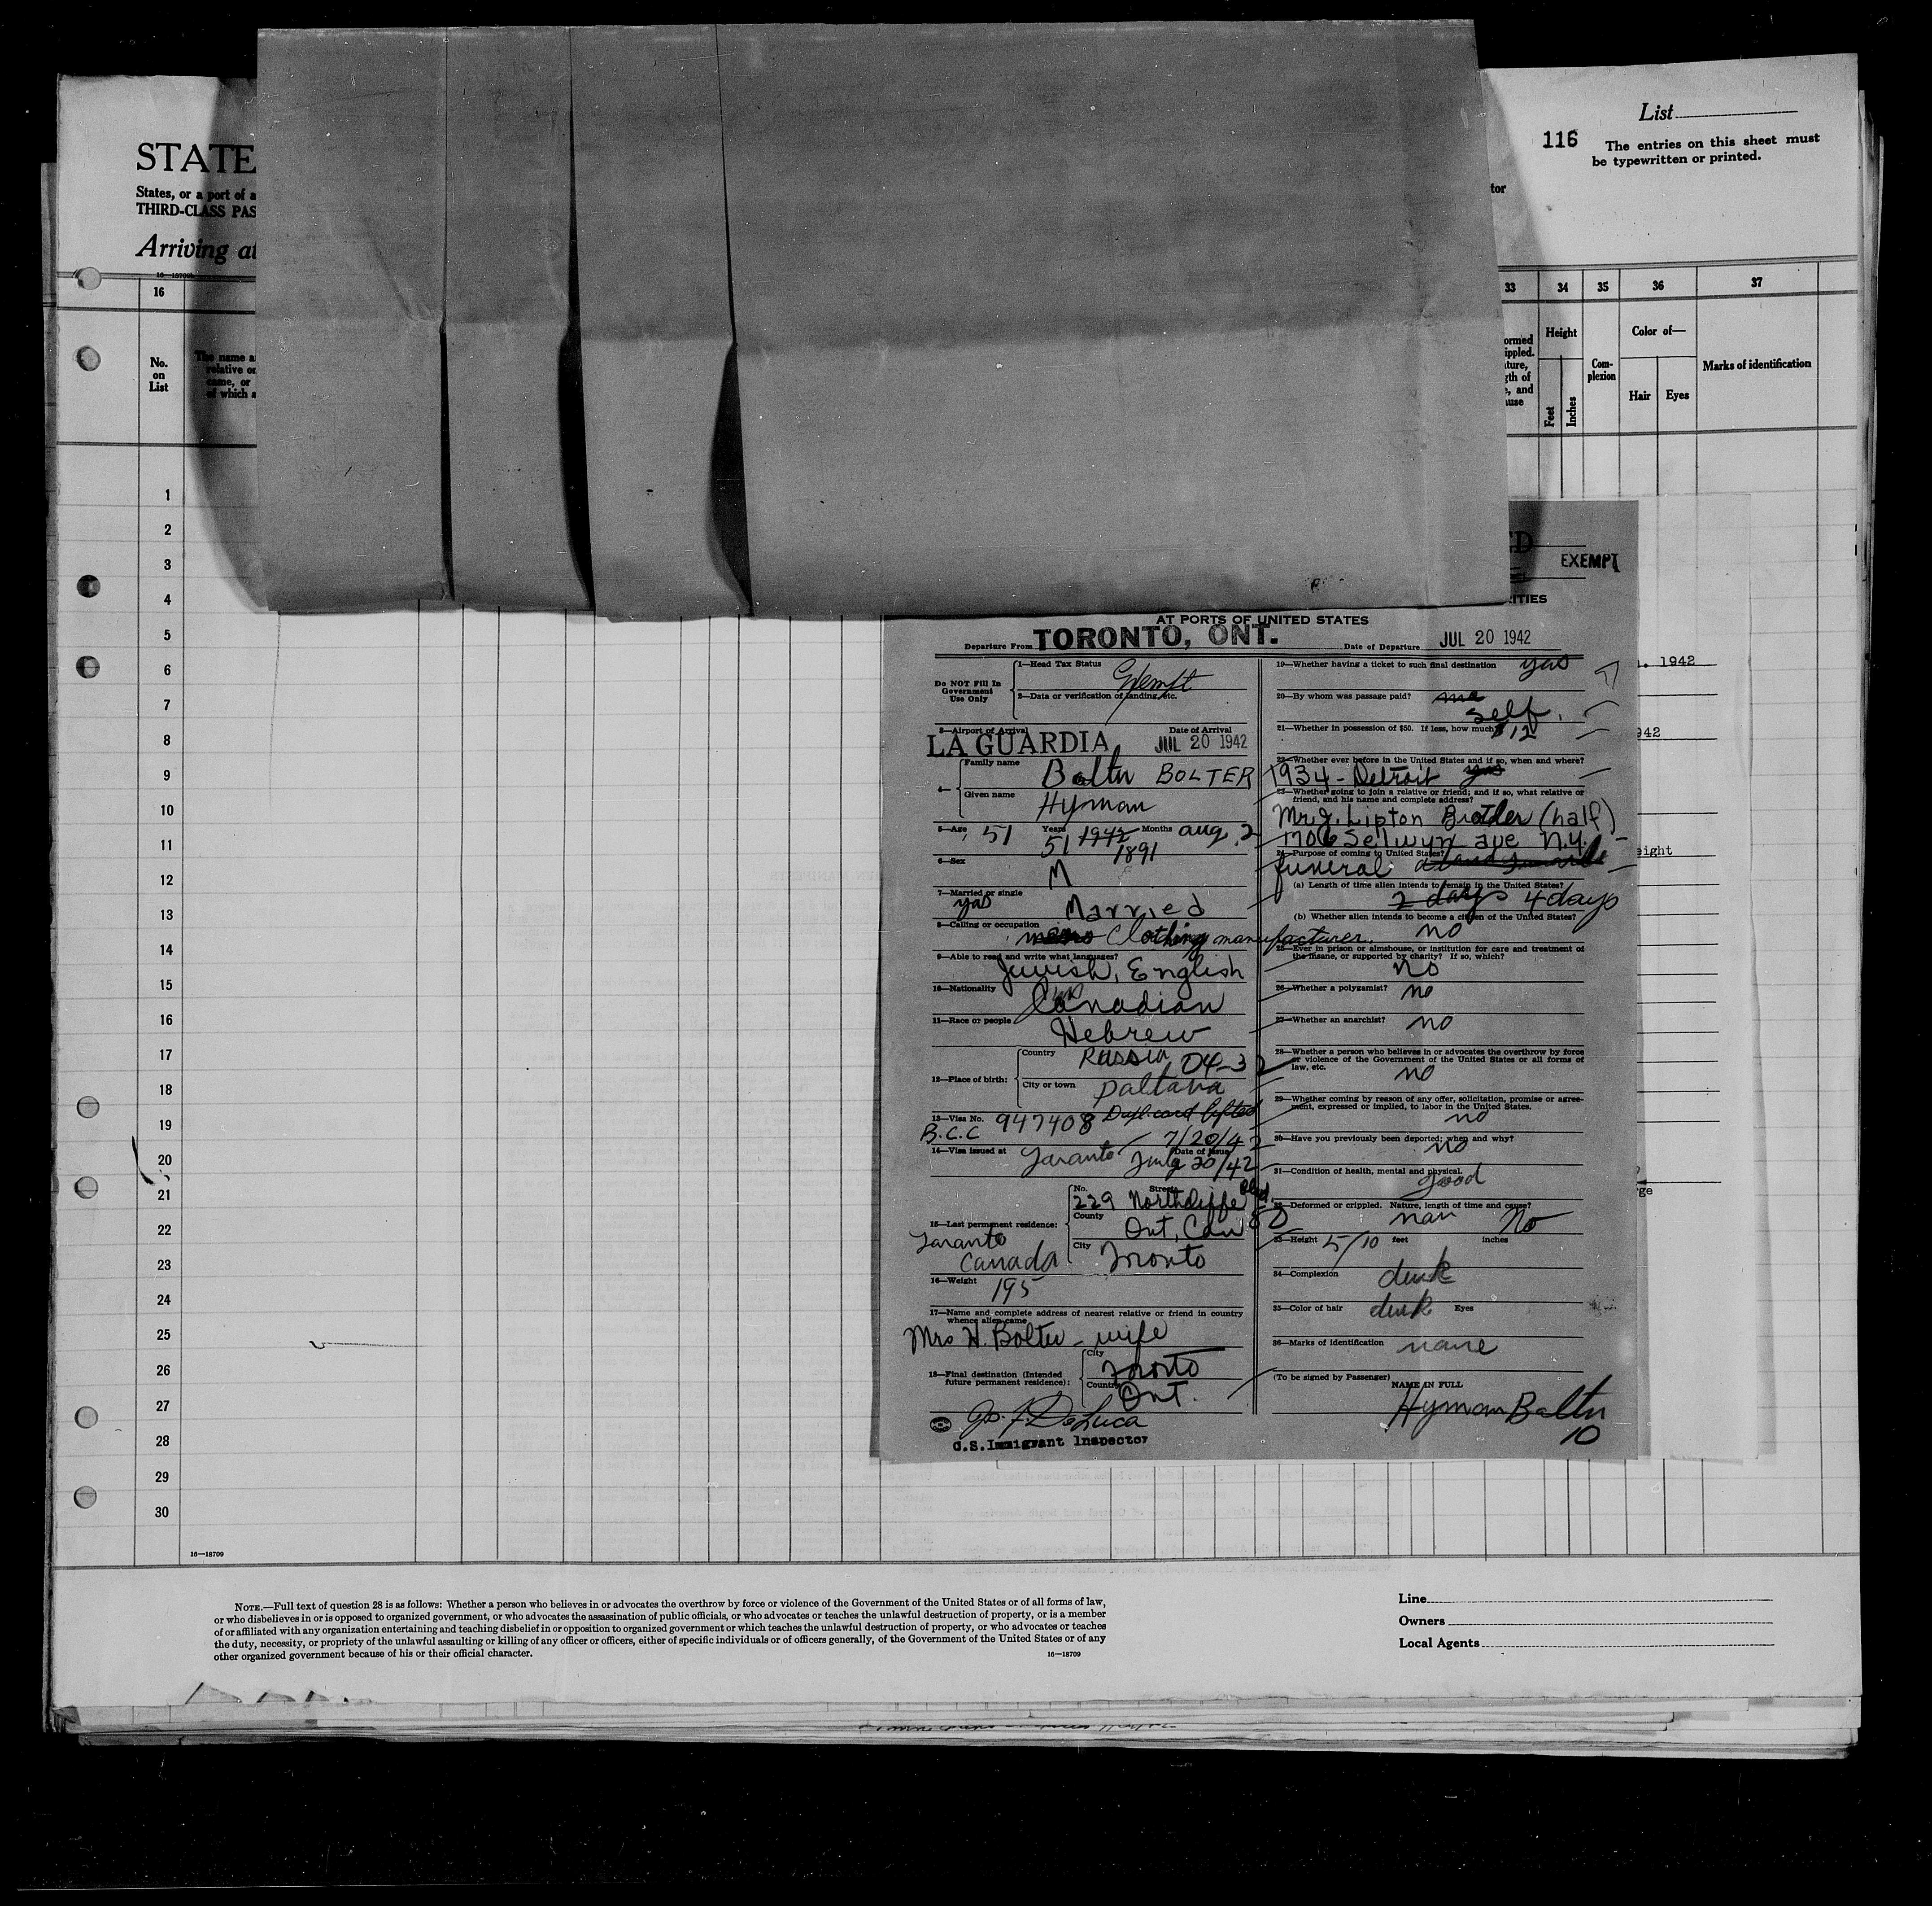 List
116
The entries on this sheet must
be typewritten or printed.
STATE
States, or a port of a
THIRD-CLASS PAS
Arriving at
tor
16
33
34
35
36
37
No.
on
List
The name a
relative or
came, or
of which a
ormed
ippled.
ature,
gth of
e, and
ause
Height
Feet
Inches
Com-
plexion
Color of—
Hair
Eyes
Marks of identification
1
2
3
4
5
6
7
8
9
10
11
12
13
14
15
16
17
18
19
20
21
22
23
24
25
26
27
28
29
30
16—18709
ED
EXEMPT
RITIES
AT PORTS OF UNITED STATES
Departure From TORONTO, ONT.
Date of Departure JUL 20 1942
Do NOT Fill In
Government
Use Only
1—Head Tax Status
Exempt
2—Data or verification of landing, etc.
3—Airport of Arrival
Date of Arrival
LA GUARDIA
JUL 20 1942
4—
Family name
Bolter BOLTER
Given name
Hyman
5—Age 51 Years 1942 Months Aug. 2
51 1891
6—Sex
M
7—Married or single
yas Married
8—Calling or occupation
Clothing manufacturer.
9—Able to read and write what languages?
Jewish, English
10—Nationality
Canadian
11—Race or people
Hebrew
12—Place of birth:
Country
Russia 04-3
City or town
Paltava
13—Visa No. 947408 Dupl. card lifted
B.C.C 7/20/42
14—Visa issued at Toronto Date of issue July 20/42
15—Last permanent residence:
Toronto
Canada
No. Street
229 Northcliffe Blvd.
County
Ont, Can
City
Toronto
16—Weight
195
17—Name and complete address of nearest relative or friend in country
whence alien came
Mrs H. Bolter - wife
18—Final destination (Intended
future permanent residence):
City
Toronto
Country
Ont.
Jos. F. DeLuca
U.S. Immigrant Inspector
19—Whether having a ticket to such final destination yas
20—By whom was passage paid? me
self.
21—Whether in possession of $50. If less, how much? $12
22—Whether ever before in the United States and if so, when and where?
1934 - Detroit yas
23—Whether going to join a relative or friend; and if so, what relative or
friend, and his name and complete address?
Mr. J. Lipton Brother (half)
1706 Selwyn ave N.Y.
24—Purpose of coming to United States?
funeral
(a) Length of time alien intends to remain in the United States?
2 days 4 days
(b) Whether alien intends to become a citizen of the United States?
no
25—Ever in prison or almshouse, or institution for care and treatment of
the insane, or supported by charity? If so, which?
no
26—Whether a polygamist? no
27—Whether an anarchist? no
28—Whether a person who believes in or advocates the overthrow by force
or violence of the Government of the United States or all forms of
law, etc.
no
29—Whether coming by reason of any offer, solicitation, promise or agree-
ment, expressed or implied, to labor in the United States.
no
30—Have you previously been deported; when and why?
no
31—Condition of health, mental and physical.
good
32—Deformed or crippled. Nature, length of time and cause?
nan No
33—Height 5/10 feet inches
34—Complexion dark
35—Color of hair dark Eyes
36—Marks of identification none
(To be signed by Passenger)
NAME IN FULL
Hyman Bolter
10
. 1942
942
eight
rge
NOTE.—Full text of question 28 is as follows: Whether a person who believes in or advocates the overthrow by force or violence of the Government of the United States or of all forms of law,
or who disbelieves in or is opposed to organized government, or who advocates the assassination of public officials, or who advocates or teaches the unlawful destruction of property, or is a member
of or affiliated with any organization entertaining and teaching disbelief in or opposition to organized government or which teaches the unlawful destruction of property, or who advocates or teaches
the duty, necessity, or propriety of the unlawful assaulting or killing of any officer or officers, either of specific individuals or of officers generally, of the Government of the United States or of any
other organized government because of his or their official character.
16—18709
Line
Owners
Local Agents